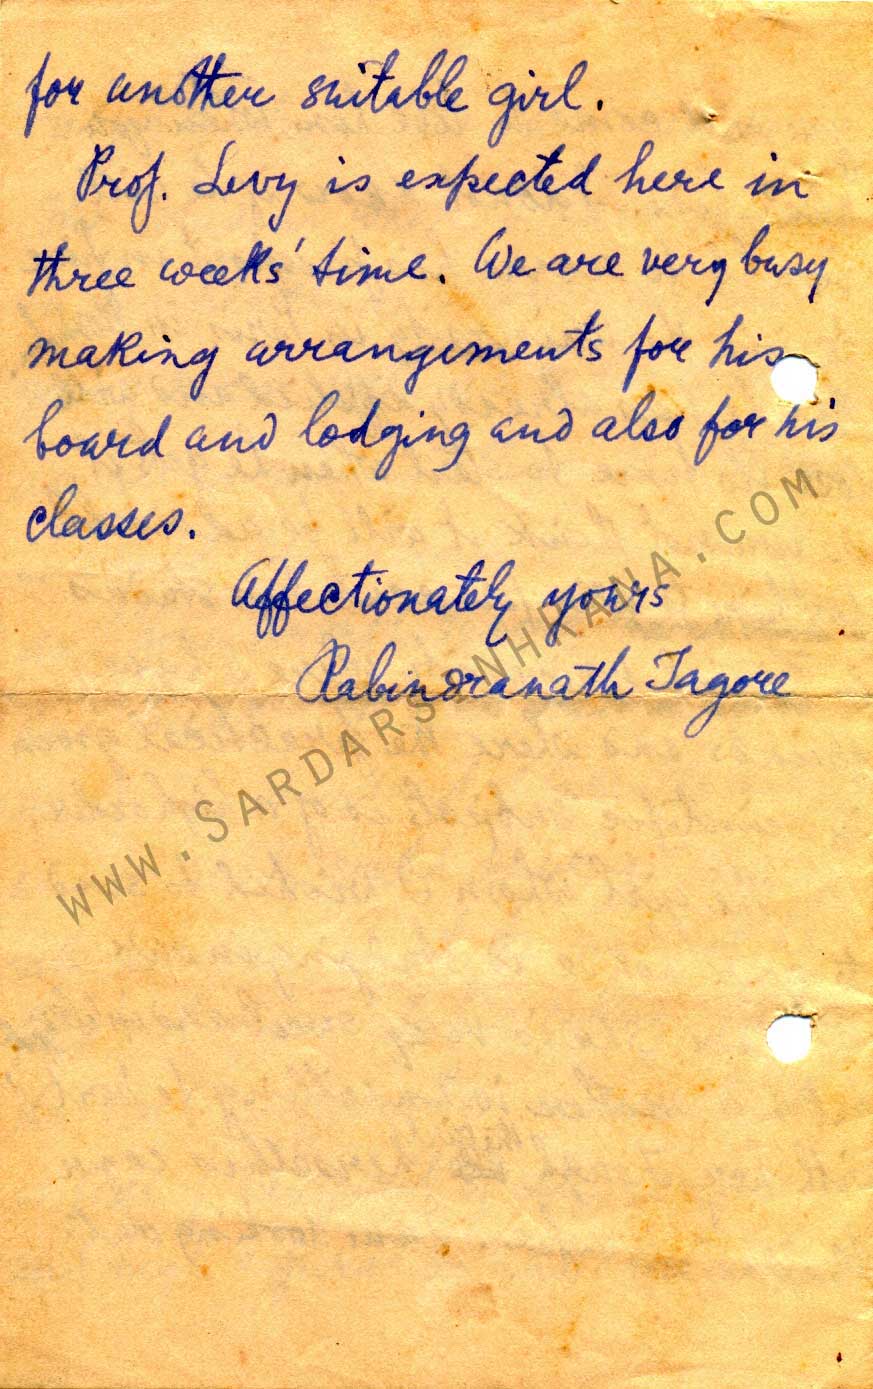 for another suitable girl.
Prof. Levy is expected here in
three weeks' time. We are very busy
making arrangements for his
board and lodging and also for his
classes.
Affectionately yours
Rabindranath Tagore
WWW.SARDARSINHRANA.COM